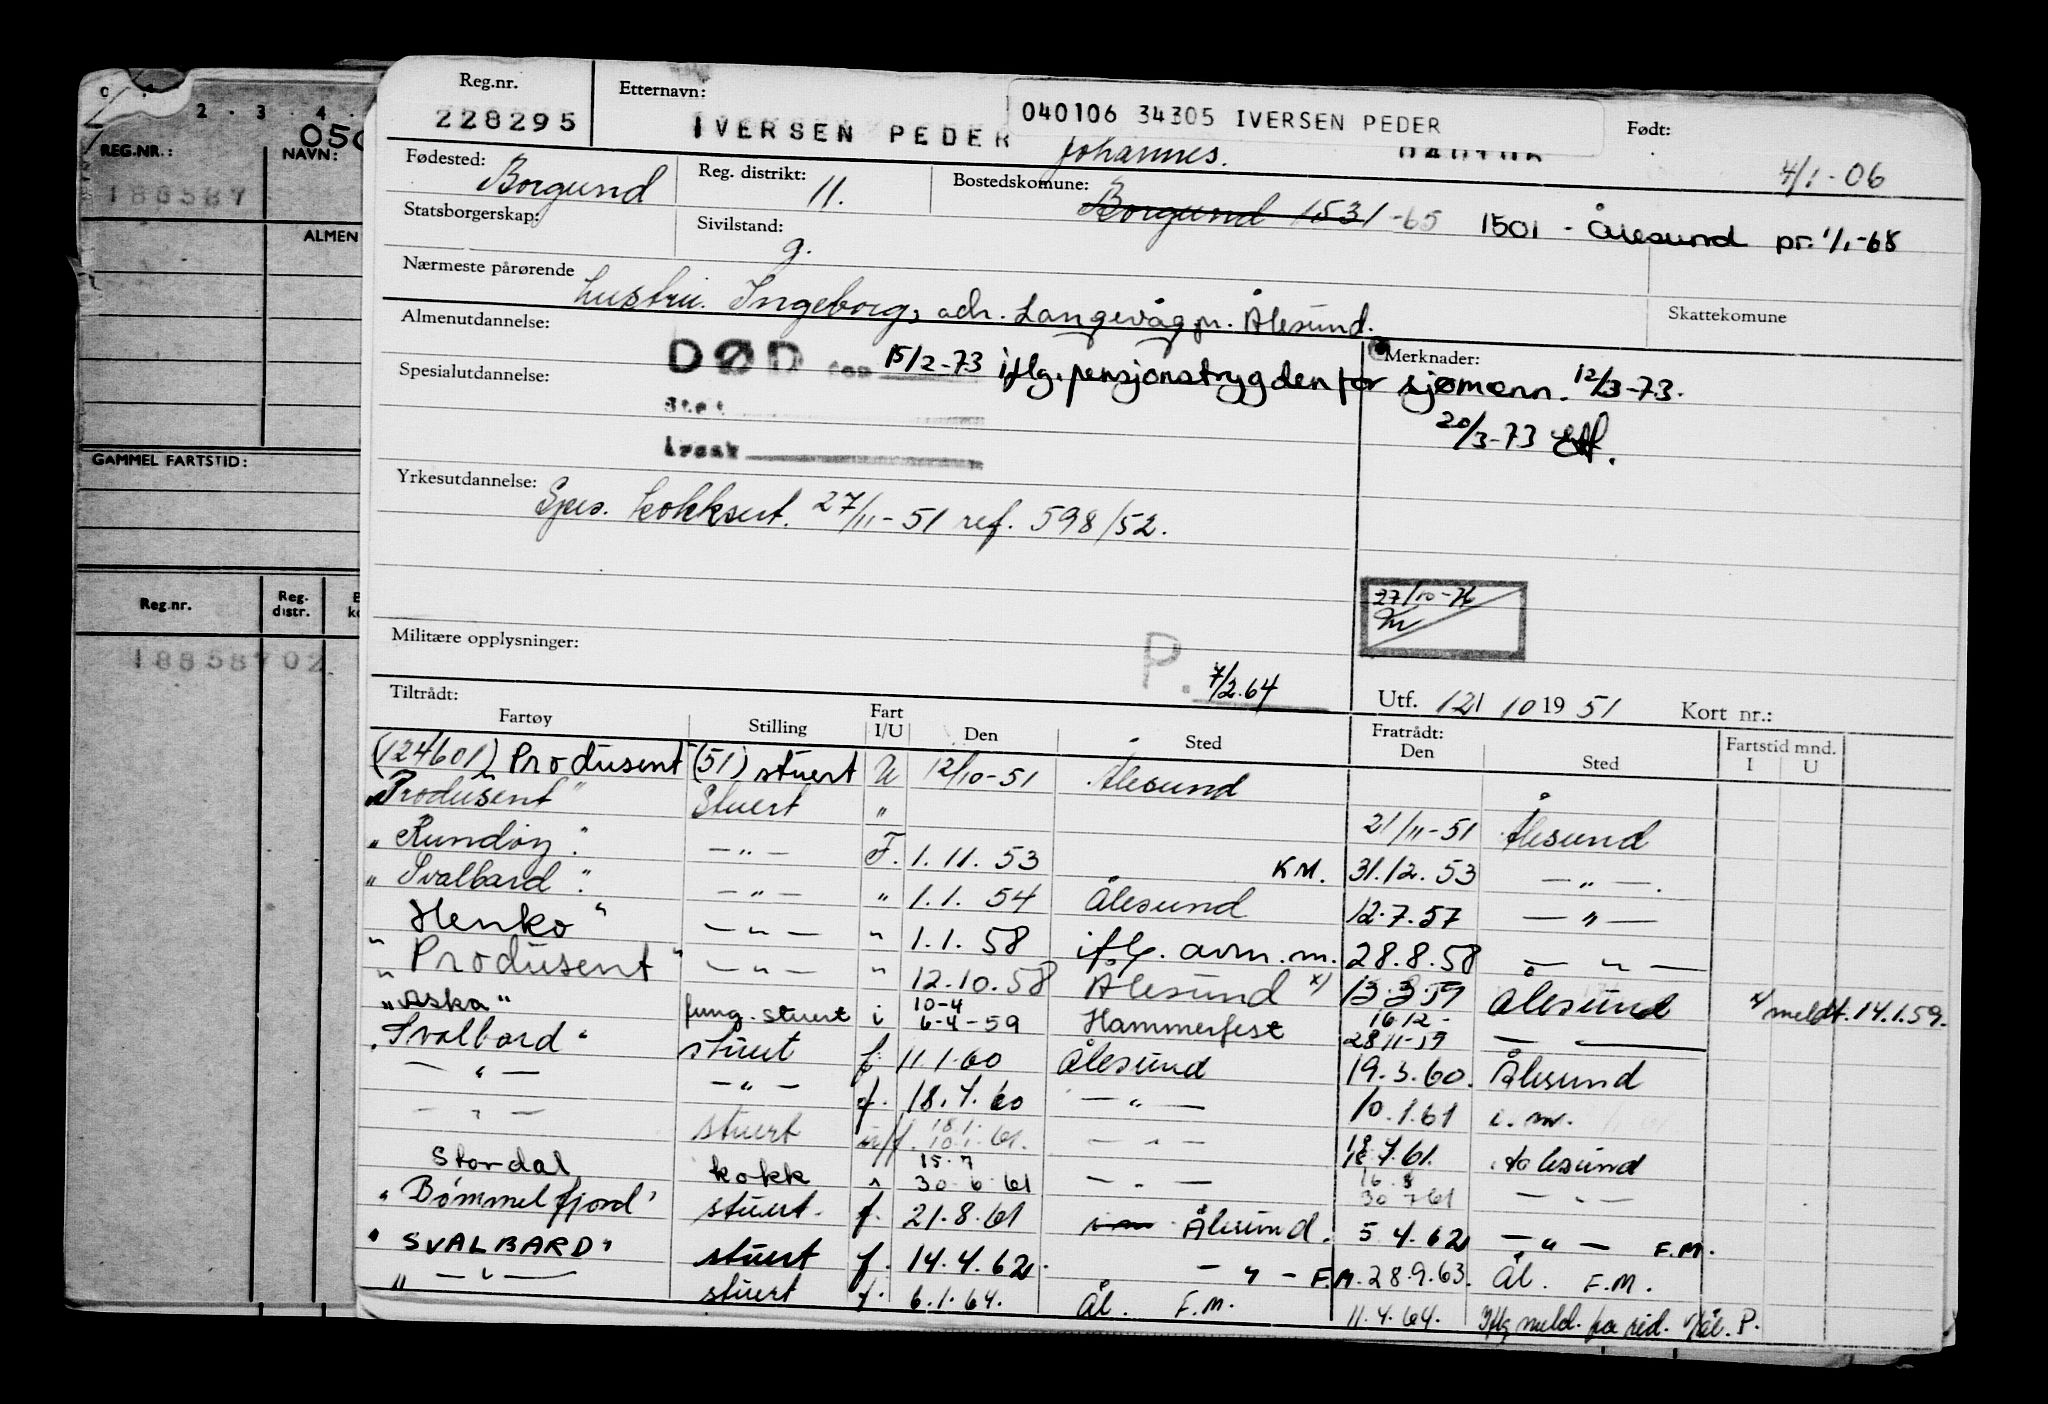 2 . 3 . 4 .
REG.NR.: NAVN:
ALMEN
GAMMEL FARTSTID:
Reg.nr. Reg. distr.
Reg.nr. 228295 Etternavn: IVERSEN PEDER Johannes. 040106 34305 IVERSEN PEDER Født: 4/1-06
Fødested: Borgund Reg. distrikt: 11. Bostedskomune: Borgund 1531 -65 1501 - Ålesund pr. 1/1-68
Statsborgerskap: Sivilstand: g.
Nærmeste pårørende hustru. Ingeborg, adr. Langevåg pr. Ålesund. Skattekomune
Almenutdannelse: DØD 15/2-73 iflg. pensjonstrygden for sjømenn. 12/3-73. Merknader:
Spesialutdannelse: 20/3-73
Yrkesutdannelse: Spes. kokksert. 27/11-51 ref. 598/52.
27/10-76
Militære opplysninger: P. 7/2.64
Tiltrådt: Utf. 12/ 10 19 51 Kort nr.:
Fartøy Stilling Fart I/U Den Sted Fratrådt: Den Sted Fartstid mnd. I U
(124601) Produsent (51) stuert U 12/10-51 Ålesund
"Produsent" Stuert " 21/11-51 Ålesund
"Rundøy" — " — F. 1.11.53 KM. 31.12.53 — " —.
"Svalbard" — " — " 1.1.54 Ålesund 12.7.57 — " —
Henko" — " — " 1.1.58 iflg. avm. m. 28.8.58 — " —
"Produsent" — " — " 12.10.58 Ålesund x) 13.3.59 Ålesund x/ meldt. 14.1.59.
"Aska" fung. stuert i 10-4 6-4-59 Hammerfest 16 12- 28 11-59 —
"Svalbard" stuert f. 11 1.60 Ålesund 19.3.60. Ålesund
— " — — " — f. 18.4.60 — " — 10.1.61 i. m.
— " — stuert 18.1. 10.1.61. — " — 7.61. Ålesund
Stordal kokk 15.7 30.6.61 — " — 16.8 30 7 61 — " —
"Bømmelfjord" stuert. f. 21.8.61 Ålesund. 5 4.62 — " — F.M.
"SVALBARD" stuert f. 14.4.62. — " — F.M. 28.9.63. Ål. F.M.
" — " — stuert f. 6.1.64. Ål. F.M. 11.4.64. Iflg meld. fra red. Ål. P.